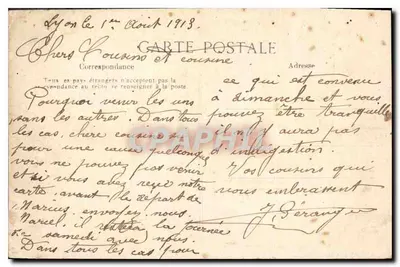 Lyon le 1er Août 1913.
Chers Cousins et cousine
CARTE POSTALE
Correspondance
Adresse
Tous les pays étrangers n'acceptent pas la
correspondance au recto se renseigner à la poste
Pourquoi venir les uns
sans les autres. Dans tous
les cas, chère cousine, si
pour une cause quelconque
vous ne pouvez pas venir
et si vous avez reçu notre
carte avant le départ de
Marius, envoyez nous
Marcel, il la tournée
samedi avec nous.
Dans tous les cas pour
ce qui est convenu
à dimanche et vous
pouvez être tranquille
il n'y aura pas
d'indigestion.
Vos cousins qui
vous embrassent
J. Béranger
CRAPHILA